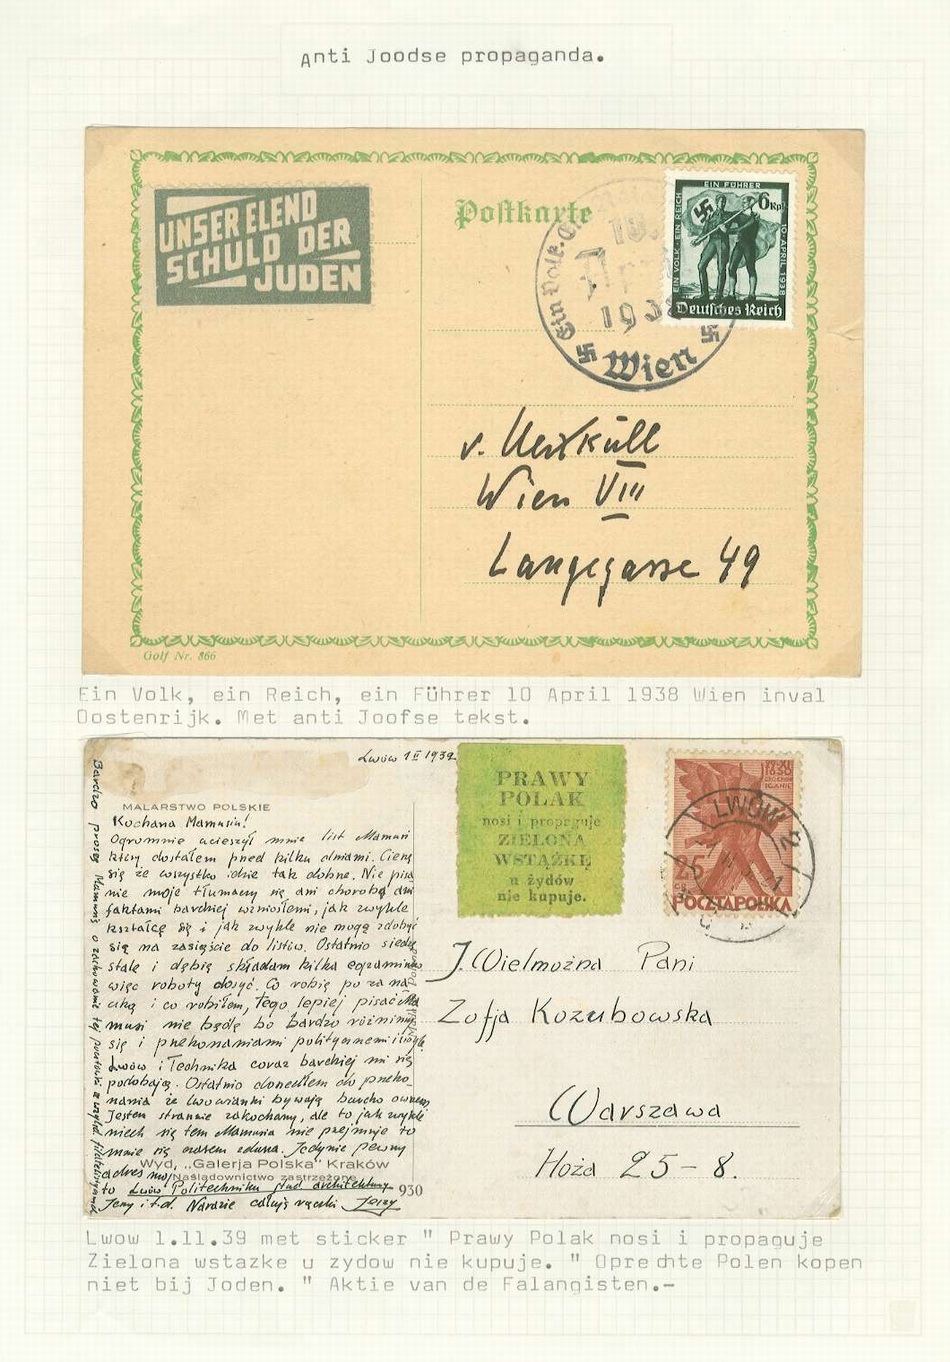 Anti Joodse propaganda.
UNSER ELEND
SCHULD DER
JUDEN
Postkarte
EIN FÜHRER
EIN VOLK · EIN REICH
10·APRIL 1938
6 Rpf
Deutsches Reich
Ein Volk.
1938
Wien
v. Uexküll
Wien VIII
Langegasse 49
Golf Nr. 866
Ein Volk, ein Reich, ein Führer 10 April 1938 Wien inval
Oostenrijk. Met anti Joofse tekst.
Lwów 1 II 1932
MALARSTWO POLSKIE
Kochana Mamusiu!
Ogromnie ucieszył mnie list Mamusi
który dostałem przed kilku dniami. Cieszę
się że wszystko idzie tak dobrze. Nie pisa
nie moje tłumaczy się ani chorobą ani
faktami bardziej wzniosłemi, jak zwykle
kształcę się i jak zwykle nie mogę zdobyć
się na zasiąście do listów. Ostatnio siedzę
stale i składam kilka egzaminów
więc roboty dosyć. Co robię po za na
uką i co robiłem, tego lepiej pisać Ma
musi nie będę bo bardzo różnimy
się i przekonaniami politycznemi
Lwów i Technika coraz bardziej mi się
podobają. Ostatnio doszedłem do przeko-
nania że lwowianki bywają bardzo
Jestem strasznie zakochany, ale to jak zwykle
niech się tem Mamusia nie przejmuje to
mnie się czasem zdarza. Jedynie pewny
Wyd. „Galerja Polska" Kraków
adres mój
Naśladownictwo zastrzeżone
to Lwów Politechnika
930
Jerzy i t.d. Narazie całuję rączki Jerzy
Bardzo proszę Mamusię o zachowanie tej pocztówki
PRAWY
POLAK
nosi i propaguje
ZIELONĄ
WSTĄŻKĘ
u żydów
nie kupuje.
LWÓW 2
1830
25
POCZTA POLSKA
J. Wielmożna Pani
Zofja Kozubowska
Warszawa
Hoża 25 - 8.
Lwow 1.11.39 met sticker " Prawy Polak nosi i propaguje
Zielona wstazke u zydow nie kupuje. " Oprechte Polen kopen
niet bij Joden. " Aktie van de Falangisten.-